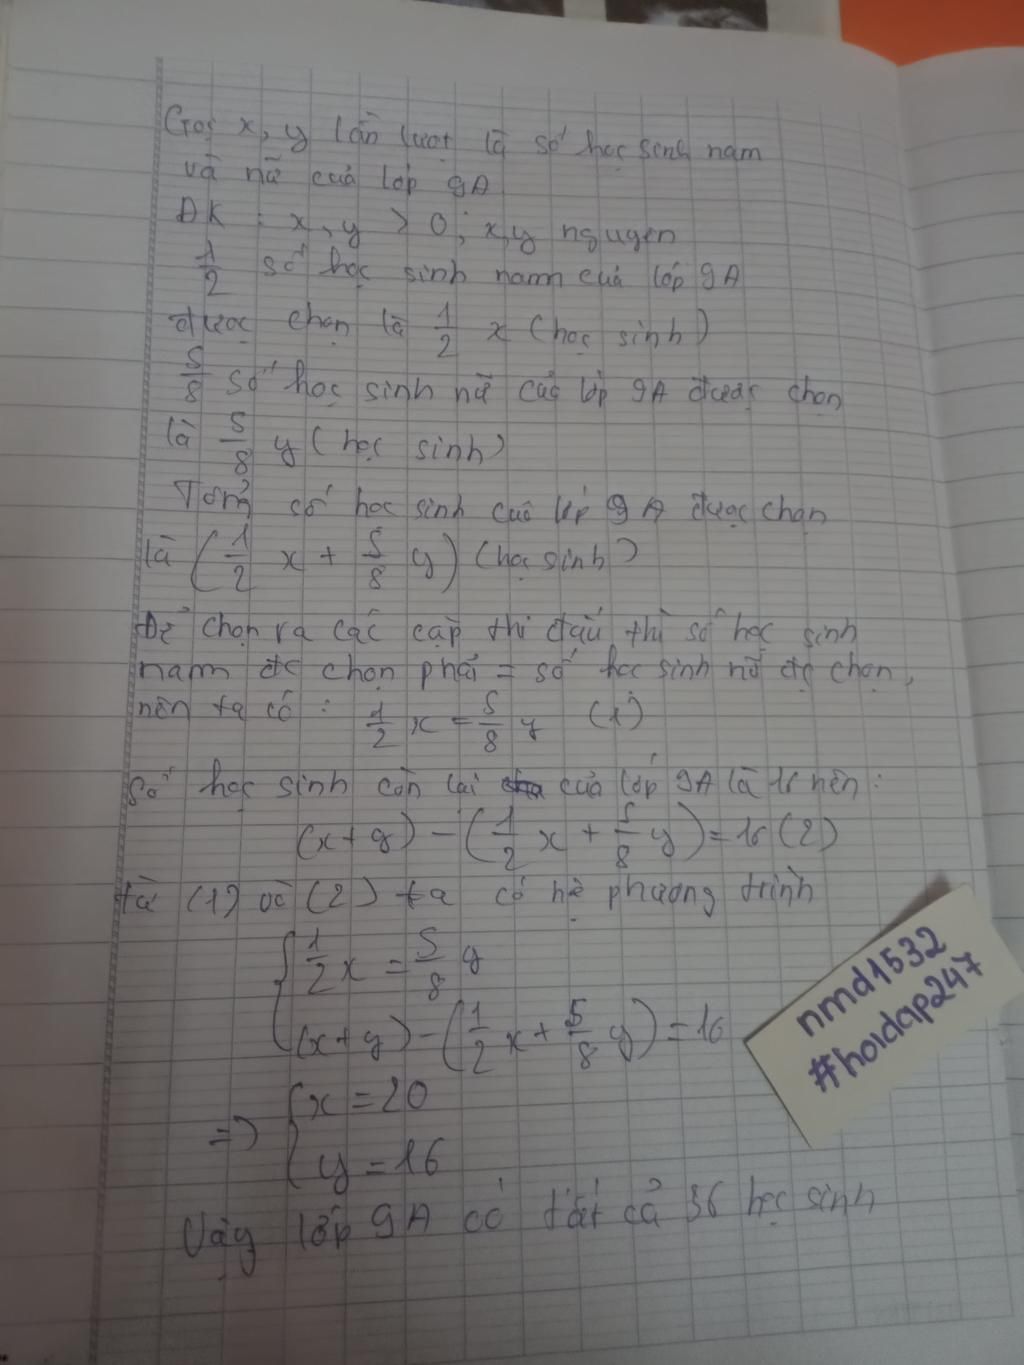 Gọi x, y lần lượt là số học sinh nam
và nữ của lớp 9A
ĐK : x, y > 0; x,y nguyên
1/2 số học sinh nam của lớp 9A
được chọn là 1/2 x (học sinh)
5/8 số học sinh nữ của lớp 9A được chọn
là 5/8 y (học sinh)
Tổng số học sinh của lớp 9A được chọn
là (1/2 x + 5/8 y) (học sinh)
Để chọn ra các cặp thi đấu thì số học sinh
nam đc chọn phải = số học sinh nữ đc chọn,
nên ta có : 1/2 x = 5/8 y (1)
Số học sinh còn lại của lớp 9A là 16 nên :
(x+y) - (1/2 x + 5/8 y) = 16 (2)
Từ (1) và (2) ta có hệ phương trình
{ 1/2 x = 5/8 y
(x+y) - (1/2 x + 5/8 y) = 16
=> { x = 20
y = 16
Vậy lớp 9A có tất cả 36 học sinh
nmd1532
#hoidap247